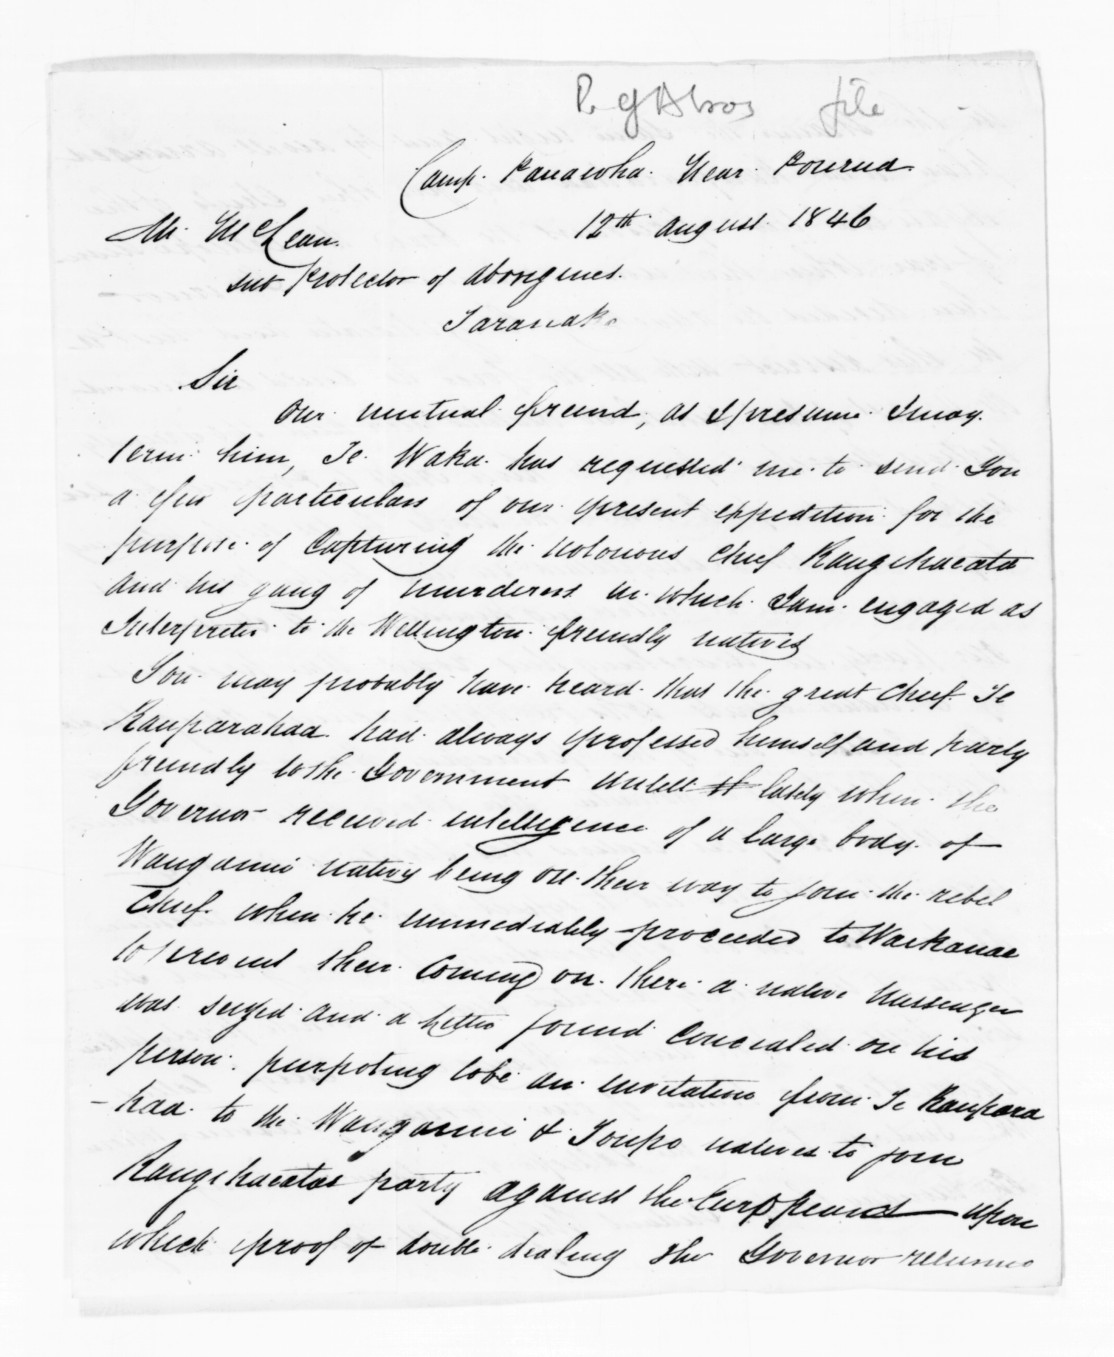 file
Camp. Near
12th August 1846
Mr. McLean.
Sub Protector of Aborigines.
Taranaki
Sir
Our mutual freind, as I presume I may
term him, Te Waka has requested me to send You
a few particulars of our present expedition for the
purpose of Capturing the notorious Chief Rangihaeata
and his gang of murderers in which I am engaged as
Interpreter to the Wellington freindly natives
You may probably have heard that the great Chief Te
Rauparahaa had always professed himself and party
freindly to the Government untill lately when the
Governor received intelligence of a large body of
Wanganui natives being on their way to join the rebel
Chief when he immediately proceeded to Waikanae
to prevent their coming on. there a native Messenger
was seized and a letter found concealed on his
person purpoting to be an invitation from Te Raupara
-haa to the Wanganui & Toupo natives to join
Rangihaeatas party against the Europeans upon
which proof of double dealing the Governor returned